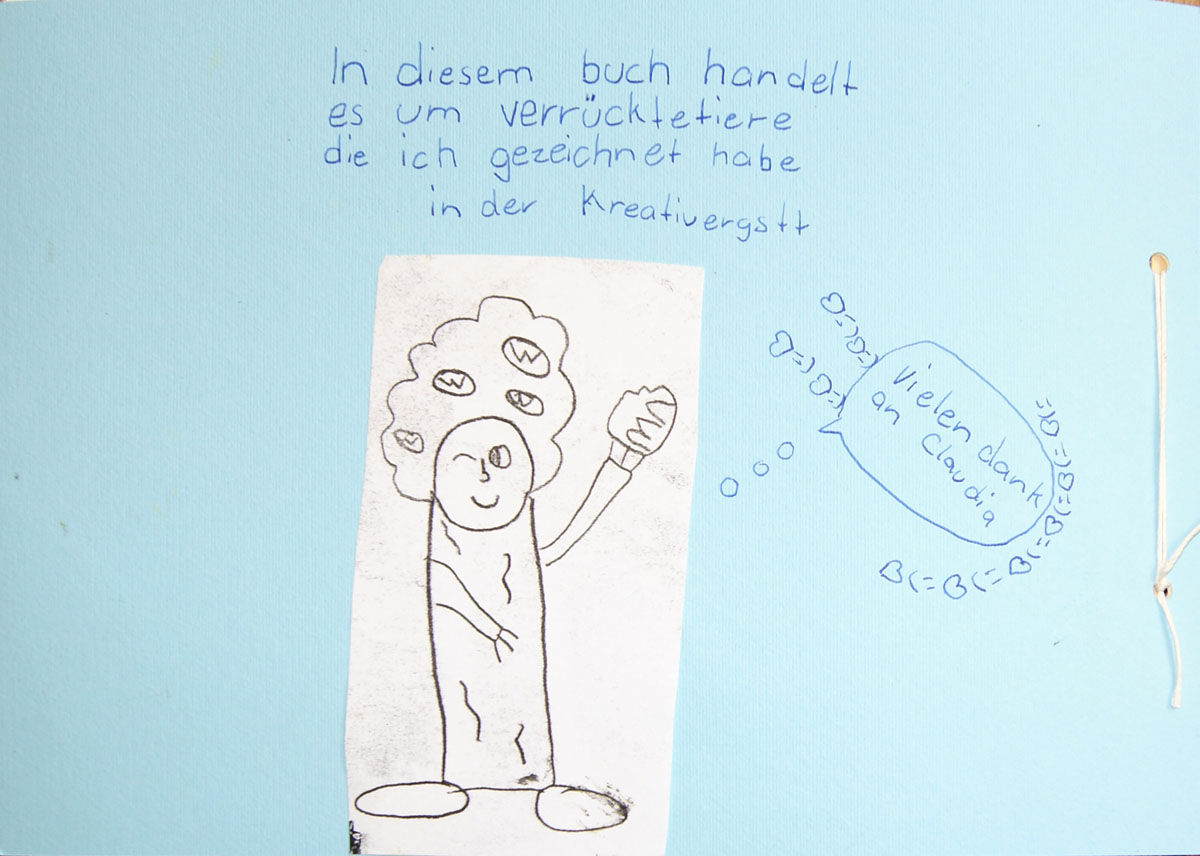 In diesem buch handelt
es um verrücktetiere
die ich gezeichnet habe
in der Kreativergstt
vielen dank
an Claudia